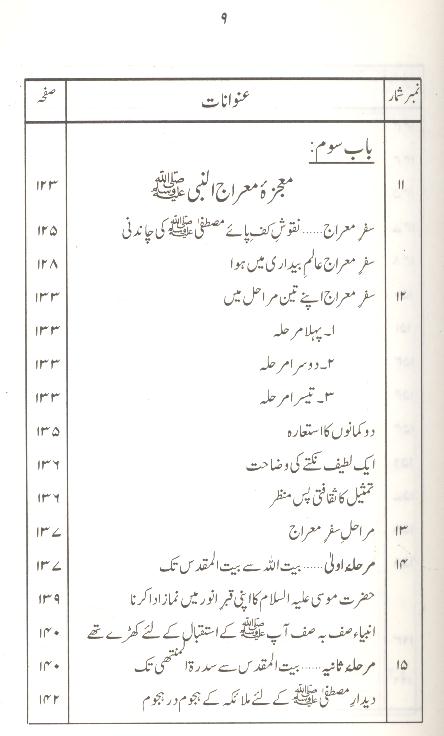 ۹
نمبر شمار عنوانات صفحہ
باب سوم:
۱۱ معجزۂ معراج النبی ﷺ ۱۲۳
سفرِ معراج...... نقوشِ کفِ پائے مصطفیٰ ﷺ کی چاندنی ۱۲۵
سفرِ معراج عالمِ بیداری میں ہوا ۱۲۸
۱۲ سفرِ معراج اپنے تین مراحل میں ۱۳۳
۱۔ پہلا مرحلہ ۱۳۳
۲۔ دوسرا مرحلہ ۱۳۳
۳۔ تیسرا مرحلہ ۱۳۳
دو کمانوں کا استعارہ ۱۳۵
ایک لطیف نکتے کی وضاحت ۱۳۶
تمثیل کا ثقافتی پس منظر ۱۳۶
۱۳ مراحلِ سفرِ معراج ۱۳۷
۱۴ مرحلۂ اولیٰ...... بیت اللہ سے بیت المقدس تک ۱۳۷
حضرت موسیٰ علیہ السلام کا اپنی قبرِ انور میں نماز ادا کرنا ۱۳۹
انبیاء صف بہ صف آپ ﷺ کے استقبال کے لئے کھڑے تھے ۱۴۰
۱۵ مرحلۂ ثانیہ...... بیت المقدس سے سدرۃ المنتھیٰ تک ۱۴۰
دیدارِ مصطفیٰ ﷺ کے لئے ملائکہ کے ہجوم در ہجوم ۱۴۲